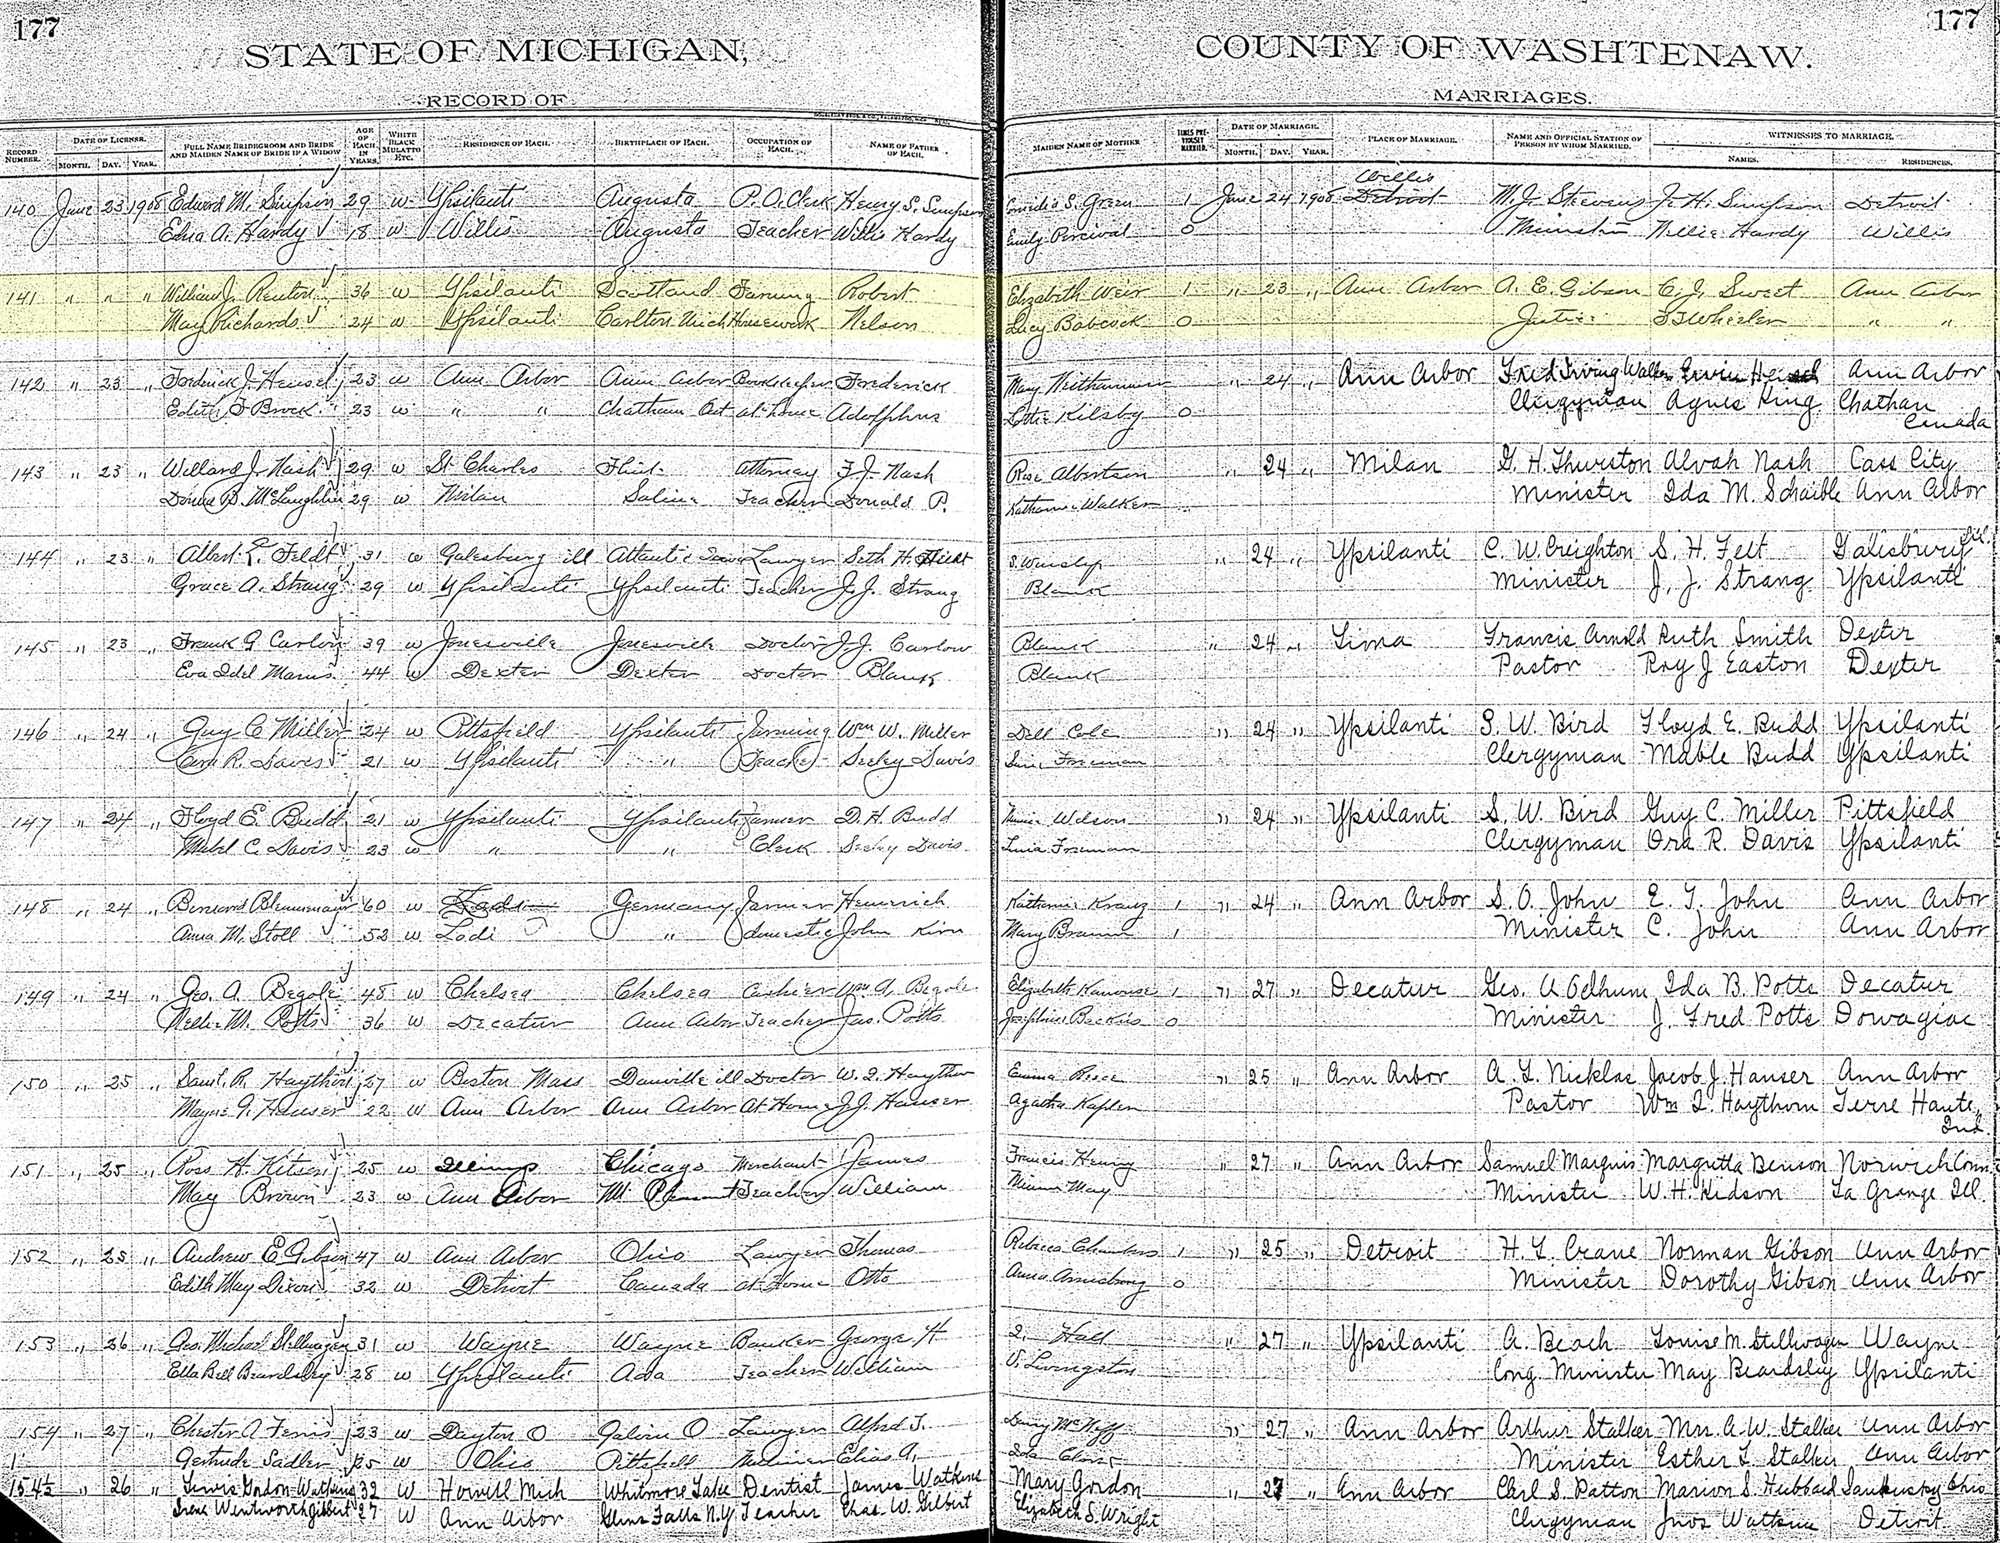 177 177
STATE OF MICHIGAN, COUNTY OF WASHTENAW.
RECORD OF MARRIAGES.
RECORD NUMBER. DATE OF LICENSE. MONTH. DAY. YEAR. FULL NAME BRIDEGROOM AND BRIDE AND MAIDEN NAME OF BRIDE IF A WIDOW AGE OF EACH IN YEARS. WHITE BLACK MULATTO ETC. RESIDENCE OF EACH. BIRTHPLACE OF EACH. OCCUPATION OF EACH. NAME OF FATHER OF EACH. MAIDEN NAME OF MOTHER TIMES PREVIOUSLY MARRIED. DATE OF MARRIAGE. MONTH. DAY. YEAR. PLACE OF MARRIAGE. NAME AND OFFICIAL STATION OF PERSON BY WHOM MARRIED. WITNESSES TO MARRIAGE. NAMES. RESIDENCES.
Willis
140 June 23 1908 Edward M. Simpson 29 w Ypsilanti Augusta P.O. Clerk Henry S. Simpson S. Green 1 June 24 1908 Detroit M. J. Stevens J. H. Simpson Detroit
Edna A. Hardy 18 w Willis Augusta Teacher Willis Hardy Emily Percival 0 Minister Nellie Hardy Willis
141 " " " William J. Renton 36 w Ypsilanti Scotland Farming Robert Elizabeth Weir 1 " 23 " Ann Arbor A. E. Gibson C. J. Sweet Ann Arbor
May Richards 24 w Ypsilanti Carlton Mich Housework Nelson Lucy Babcock 0 Justice Wheeler " "
142 " 23 " Frederick J. Hensel 23 w Ann Arbor Ann Arbor Bookkeeper Frederick Mary " 24 " Ann Arbor Fred Irving Walker Ann Arbor
Edith F. Brock 23 w " " Chatham Ont at home Adolphus Lottie Kilsby 0 Clergyman Agnes King Chathan
Canada
143 " 23 " Willard J. Nash 29 w St Charles Flint Attorney F. J. Nash Rose Albertson " 24 " Milan G. H. Thurston Alvah Nash Cass City
B. McLaughlin 29 w Milan Saline Teacher Donald P. Katharine Walker Minister Ida M. Schaible Ann Arbor
144 " 23 " Albert E. Feldt 31 w Galesburg ill Atlantic Iowa Lawyer Seth H. S. Winslip " 24 " Ypsilanti C. W. Creighton S. H. Felt Galisburg Ill.
Grace A. Strang 29 w Ypsilanti Ypsilanti Teacher J. J. Strang Blank Minister J. J. Strang Ypsilanti
145 " 23 " Frank G. Carlow 39 w Jonesville Jonesville Doctor J. J. Carlow Blank " 24 " Lima Francis Arnold Ruth Smith Dexter
Eva Idel Marus 44 w Dexter Dexter Doctor Blank Blank Pastor Roy J Easton Dexter
146 " 24 " Guy C Miller 24 w Pittsfield Ypsilanti Farming Wm W. Miller Dell Cole " 24 " Ypsilanti S. W. Bird Floyd E. Budd Ypsilanti
R. Davis 21 w Ypsilanti " Teacher Seeley Davis Foreman Clergyman Mable Budd Ypsilanti
147 " 24 " Floyd E Budd 21 w Ypsilanti Ypsilanti Farmer D. H Budd Wilson " 24 " Ypsilanti S. W. Bird Guy C. Miller Pittsfield
Mabel C. Davis 23 w " " Clerk Seeley Davis Foreman Clergyman Ora R. Davis Ypsilanti
148 " 24 " 60 w Germany Farmer Heinrich Katherine Kranz 1 " 24 " Ann Arbor S. O. John E. T. John Ann Arbor
Anna M. Stoll 53 w Lodi " domestic John Kirn Mary Braun 1 Minister C. John Ann Arbor
149 " 24 " Geo. A. Begole 48 w Chelsea Chelsea Cashier Wm A. Begole Elizabeth Kanouse 1 " 27 " Decatur Geo. A Odhum Ida B. Potts Decatur
Nellie M. Potts 36 w Decatur Ann Arbor Teacher Jas. Potts Josephine Backus 0 Minister J. Fred Potts Dowagiac
150 " 25 " Saml. R. Haythorn 27 w Boston Mass Danville ill Doctor W. I. Haythorn Emma Reece " 25 " Ann Arbor A. L. Nicklas Jacob J. Hauser Ann Arbor
Mayme G. Hauser 22 w Ann Arbor Ann Arbor At Home J. J. Hauser Agatha Kaplen Pastor Wm I. Haythorn Terre Haute,
Ind.
151 " 25 " Ross H. Kitson 25 w Chicago Merchant James Francis Henry " 27 " Ann Arbor Samuel Marquis Margutta Benson Norwich Conn.
May Brown 23 w Ann Arbor Mt Pleasant Teacher William Minnie May Minister W. H. Kidson La Grange Ill.
152 " 25 " Andrew E Gibson 47 w Ann Arbor Ohio Lawyer Thomas Rebecca Chambers 1 " 25 " Detroit H. L. Crane Norman Gibson Ann Arbor
Edith May Dixon 32 w Detroit Canada at Home Otto Anna Armstrong 0 Minister Dorothy Gibson Ann Arbor
153 " 26 " Geo. Michael Stellwagen 31 w Wayne Wayne Banker George H I. Hall " 27 " Ypsilanti A. Beach Louise M. Stellwagen Wayne
Ella Bell Beardsley 28 w Ypsilanti Ada Teacher William V. Livingston Cong. Minister May Beardsley Ypsilanti
154 " 27 " Chester A Ferris 23 w Dayton O Galion O Lawyer Alfred T. " 27 " Ann Arbor Arthur Stalker Mrs. A. W. Stalker Ann Arbor
Gertrude Sadler 25 w Ohio Pittsfield Elias A. Ida Minister Esther L. Stalker Ann Arbor
154½ " 26 " Lewis Gordon Watkins 32 w Howell Mich Whitmore Lake Dentist James Watkins Mary Gordon " 27 " Ann Arbor Carl S. Patton Marion S. Hubbard Sandusky Ohio
Irene Wentworth Gilbert 27 w Ann Arbor Glens Falls N.Y. Teacher Chas. W. Gilbert Elizabeth S. Wright Clergyman Detroit